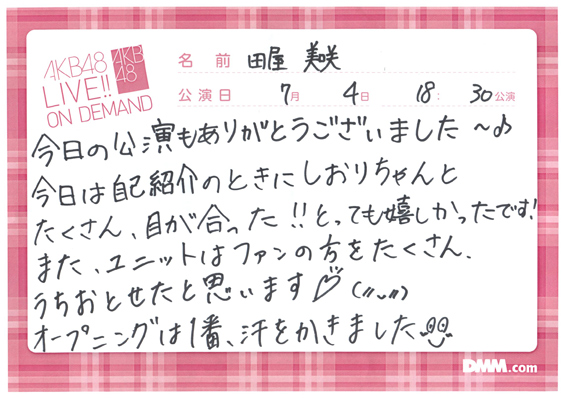 AKB48
LIVE!!
ON DEMAND
AKB
48
名前 田屋 美咲
公演日 7月 4日 18:30公演
今日の公演もありがとうございました～♪
今日は自己紹介のときにしおりちゃんと
たくさん、目が合った!!とっても嬉しかったです!
また、ユニットはファンの方をたくさん、
うちおとせたと思います♡(〃ᴗ〃)
オープニングは1番、汗をかきました
DMM.com